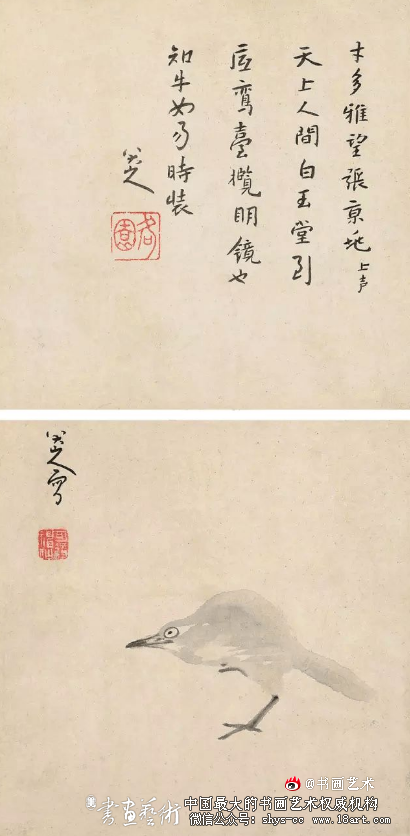 才多雅望張京兆上声
天上人間白玉堂到
底鸞臺攬明鏡也
知牛女易時裝
八大山人
八大山人寫
@书画艺术
書畫藝術
中国最大的书画艺术权威机构
微信公众号：shys-cc www.18art.com